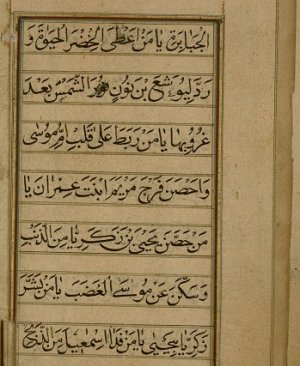 الجبابرة يا من اعطى الخضر الحيوة و
رد ليوشع بن نون الشمس بعد
غروبها يا من ربط على قلب ام موسى
و احصن فرج مريم ابنت عمران يا
من حصن يحيى بن زكريا من الذنب
و سكن عن موسى الغضب يا من بشر
زكريا بيحيى يا من فدا اسمعيل من الذبح